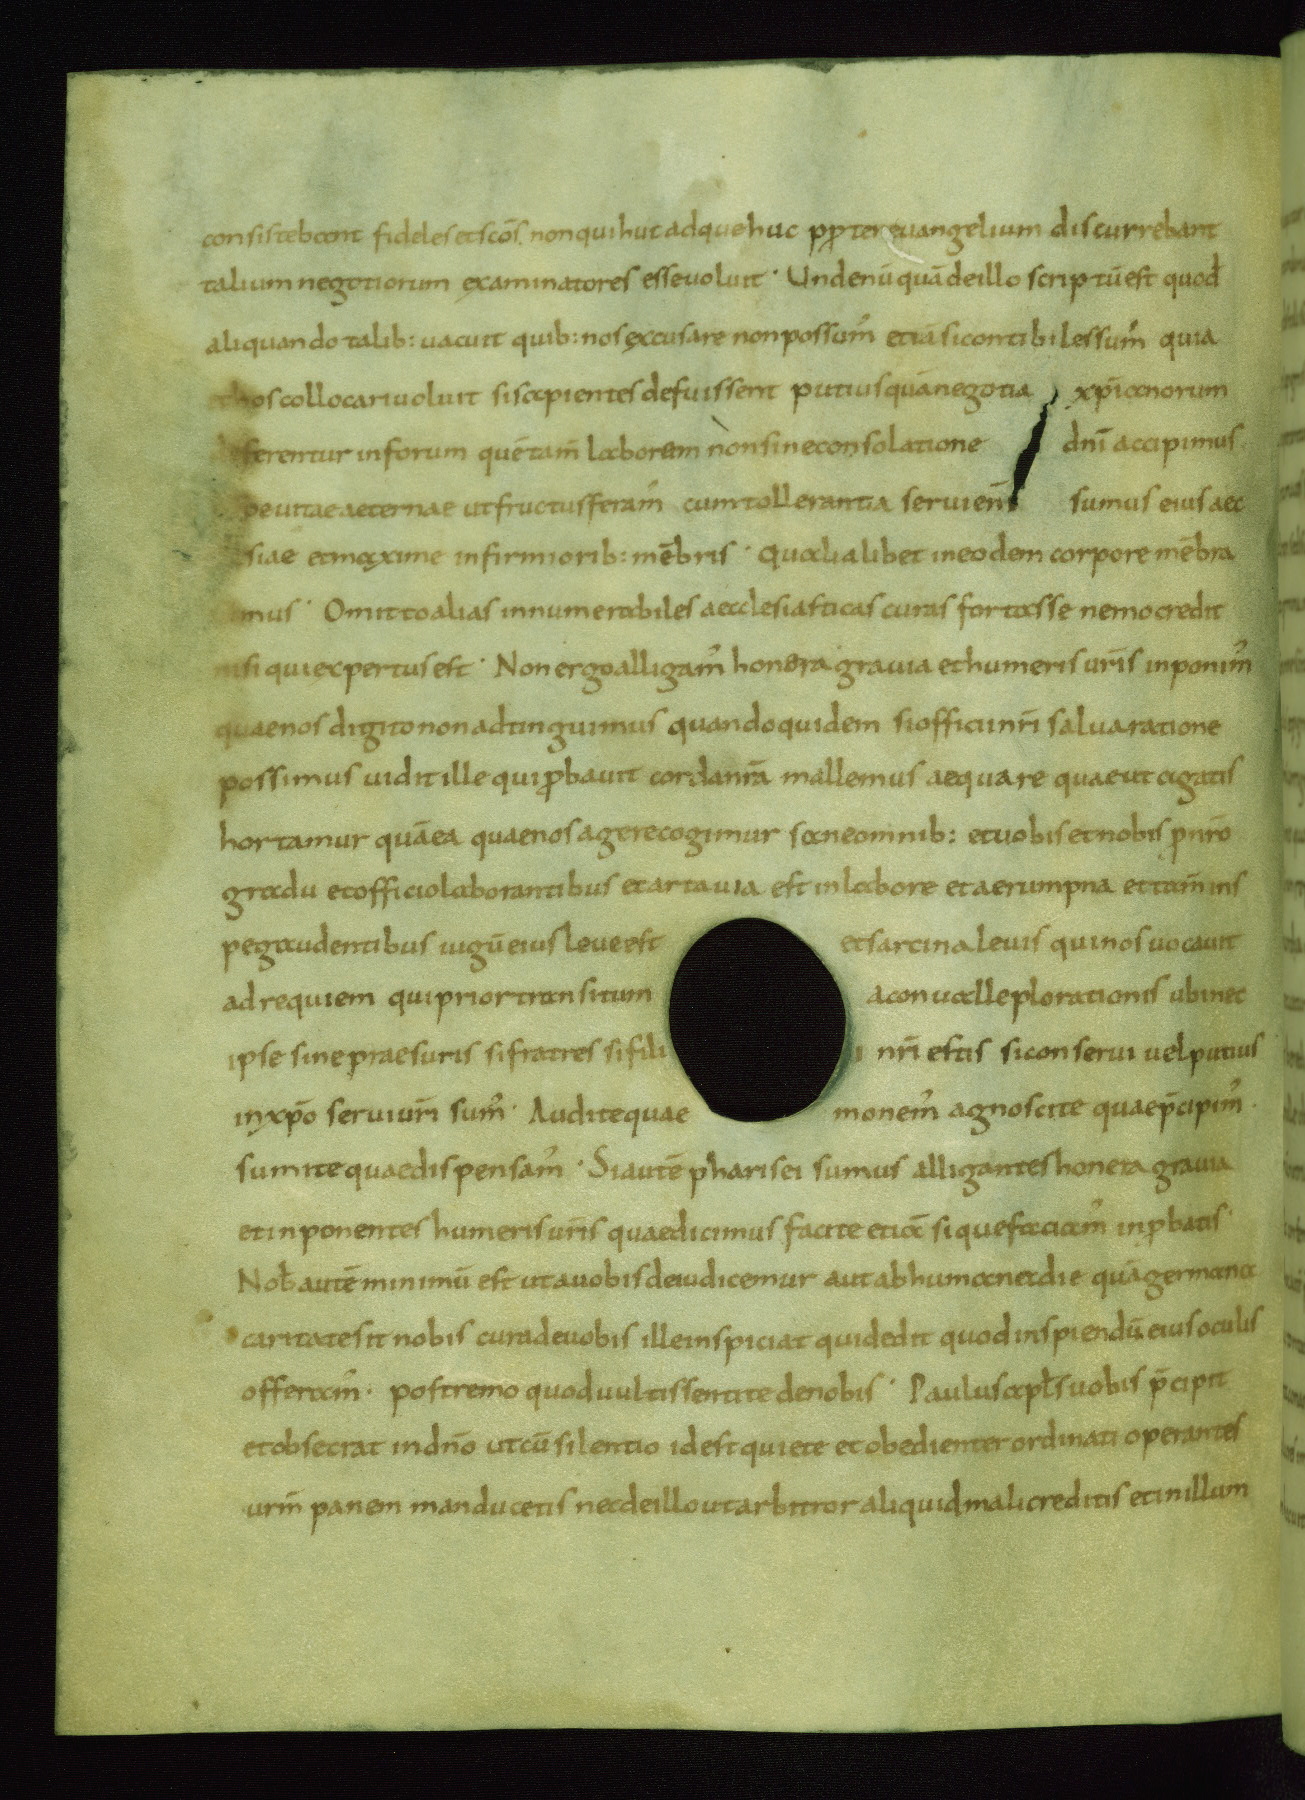 consistebant fideles et scōs non qui huc adque huc ꝓpter euangelium discurrebant
talium negotiorum examinatores esse uoluit · Unde nū quā de illo scriptū est quod
aliquando talib: uacuit quib: nos excusare non possum̄ etiā si contibiles sum̄ quia
hos collocari uoluit si sapientes defuissent putius quā negotia xp̄ianorum
ferentur in forum quē tam̄ laborem non sine consolatione dn̄i accipimus
pe uitae aeternae ut fructus feram̄ cum tollerantia seruien sumus eius aec
siae et maxime infirmiorib: mēbris · qualialibet in eodem corpore mēbra
mus · Omitto alias innumerabiles aecclesiasticas curas fortasse nemo credit
nisi qui expertus est · Non ergo alligam̄ honera grauia et humeris ur̄is inponim̄
quae nos digito non adtinguimus quandoquidem si officii nr̄i salua ratione
possimus uidit ille qui ꝓbauit corda nr̄a mallemus aequare quae ut agatis
hortamur quā ea quae nos agere cogimur sane omnib: et uobis et nobis ꝓ nr̄o
gradu et officio laborantibus et arta uia est in labore et aerumpna et tam̄ in s
pe gaudentibus iugū eius leue est et sarcina leuis qui nos uocauit
ad requiem qui prior transitum a conualle plorationis ubi nec
ipse sine praesuris si fratres si filii nr̄i estis si conserui uel putius
in xp̄o serui ur̄i sum̄ · Audite quae monem̄ agnoscite quae p̄cipim̄ ·
sumite quae dispensam̄ · Si autē pharisei sumus alligantes honera grauia
et inponentes humeris ur̄is quae dicimus facite etiā si que faciam̄ inꝓbatis
Nob̄ autē minimū est ut a uobis deiudicemur aut ab humane die quā germana
caritate sit nobis cura de uobis ille inspiciat qui dedit quod inspiendū eius oculis
offeram̄ · postremo quod uultis sentite de nobis · Paulus apl̄s uobis p̄cipit
et obsecrat in dn̄o ut cū silentio id est quiete et obedienter ordinati operantes
urm̄ panem manducetis nec de illo ut arbitror aliquid mali creditis et in illum